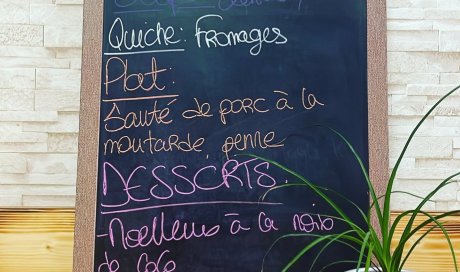 Quiche: Fromages
Plat:
Sauté de porc à la
moutarde, penne
DESSERTS:
- Moelleux à la noix
de coco